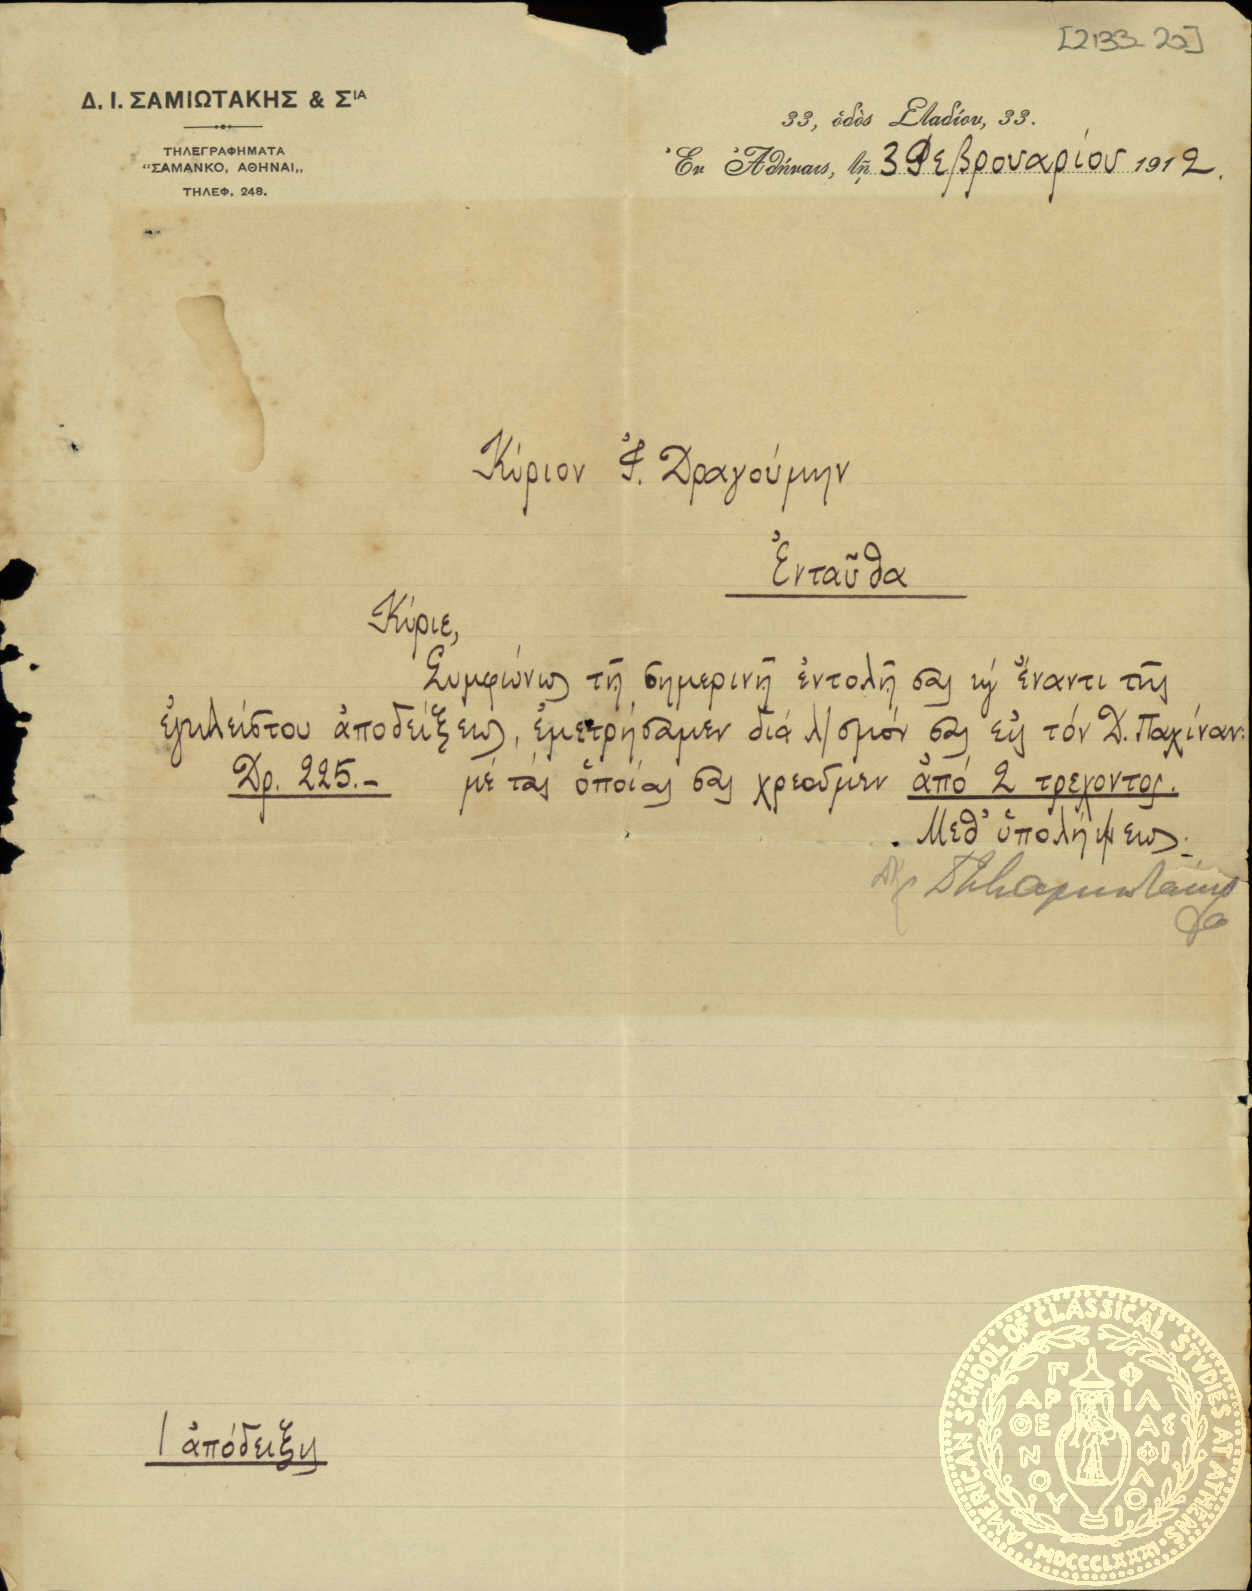 [2133-20]
Δ. Ι. ΣΑΜΙΩΤΑΚΗΣ & ΣΙΑ
ΤΗΛΕΓΡΑΦΗΜΑΤΑ
“ΣΑΜΑΝΚΟ, ΑΘΗΝΑΙ„
ΤΗΛΕΦ. 248.
33, ὁδὸς Σταδίου, 33.
Ἐν Ἀθήναις, τῇ 3 Φεβρουαρίου 1912.
Κύριον Ἴ. Δραγούμην
Ἐνταῦθα
Κύριε,
Συμφώνως τῇ σημερινῇ ἐντολῇ σας κ' ἔναντι τῆς
ἐγκλείστου ἀποδείξεως, ἐμετρήσαμεν διά λ/σμόν σας εἰς τόν Δ.
Δρ. 225.– μέ τάς ὁποίας σας χρεοῦμεν ἀπό 2 τρέχοντος.
Μεθ' ὑπολήψεως
1 ἀπόδειξις
AMERICAN SCHOOL OF CLASSICAL STVDIES AT ATHENS
MDCCCLXXXI
ΠΑΡΘΕΝΟΥ
ΦΙΛΑΣ ΦΙΛΟΙ